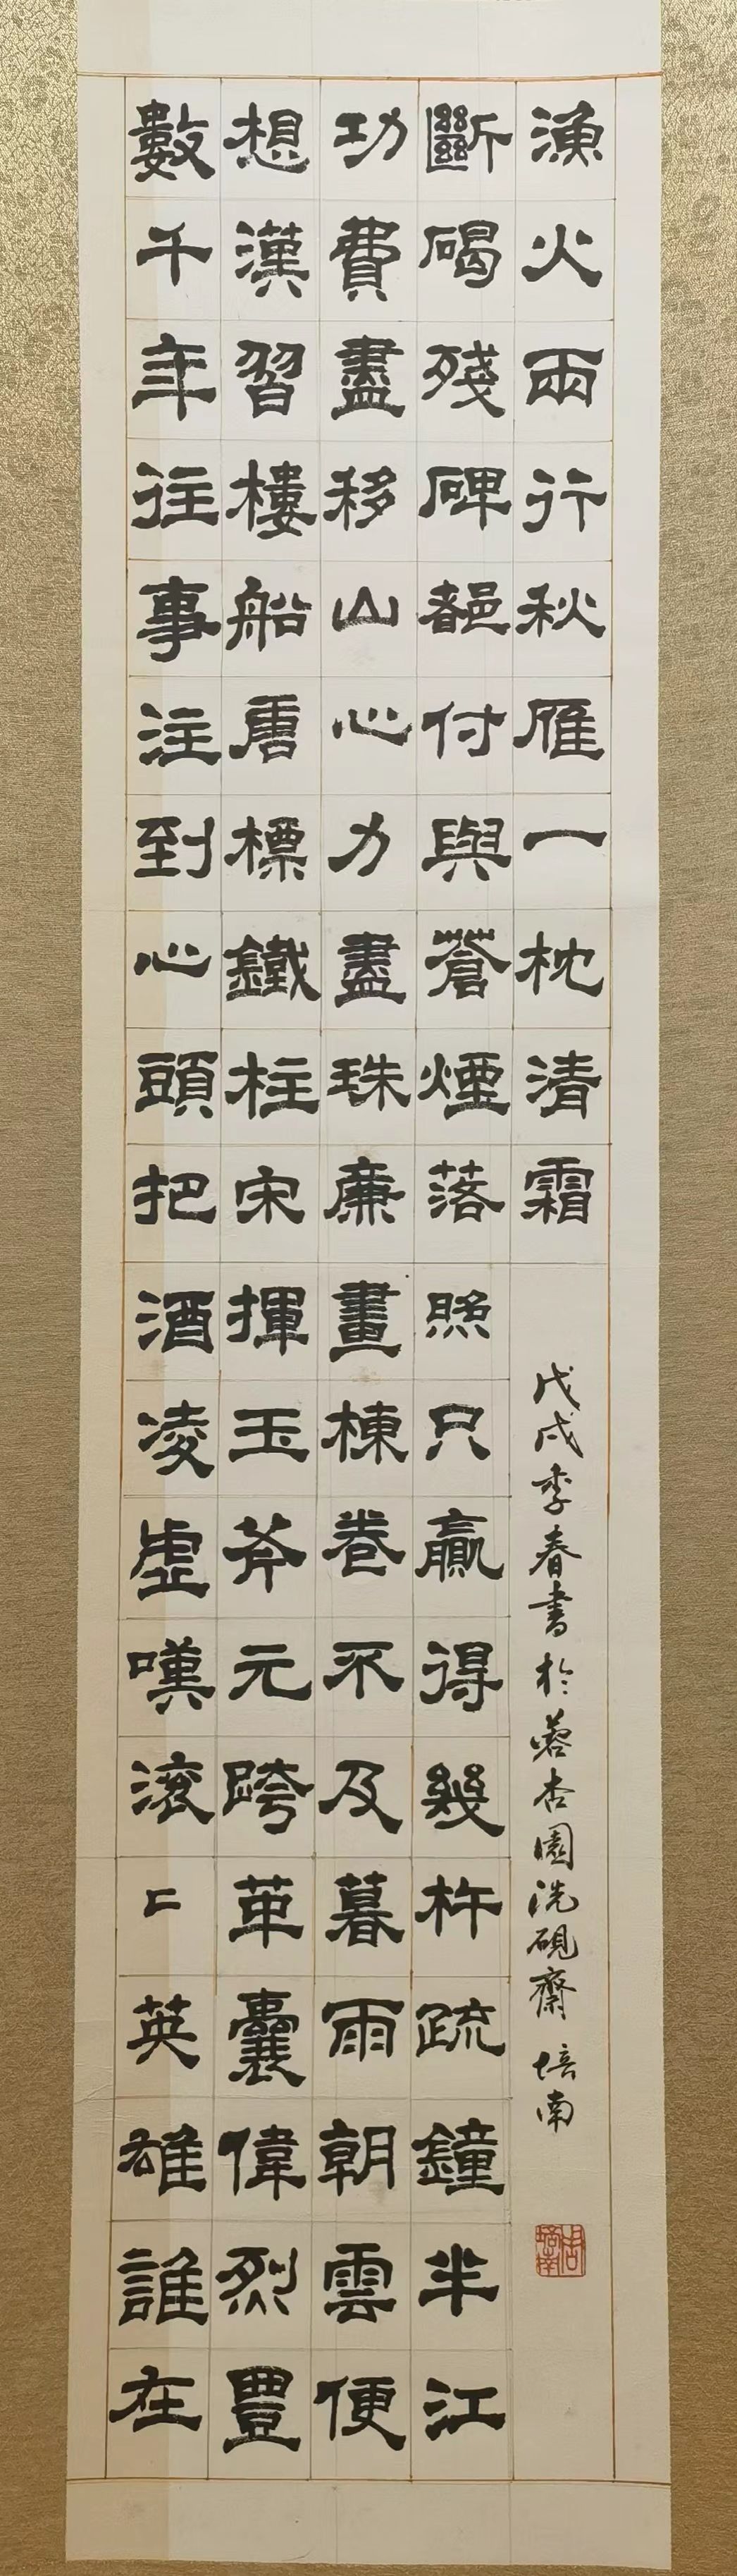 數千年往事注到心頭把酒凌虛嘆滾〻英雄誰在
想漢習樓船唐標鐵柱宋揮玉斧元跨革囊偉烈豊
功費盡移山心力盡珠廉畫棟卷不及暮雨朝雲便
斷碣殘碑都付與蒼煙落照只贏得幾杵疏鐘半江
漁火兩行秋雁一枕清霜
戊戌季春書於蓉杏園洗硯齋 培南
周培南